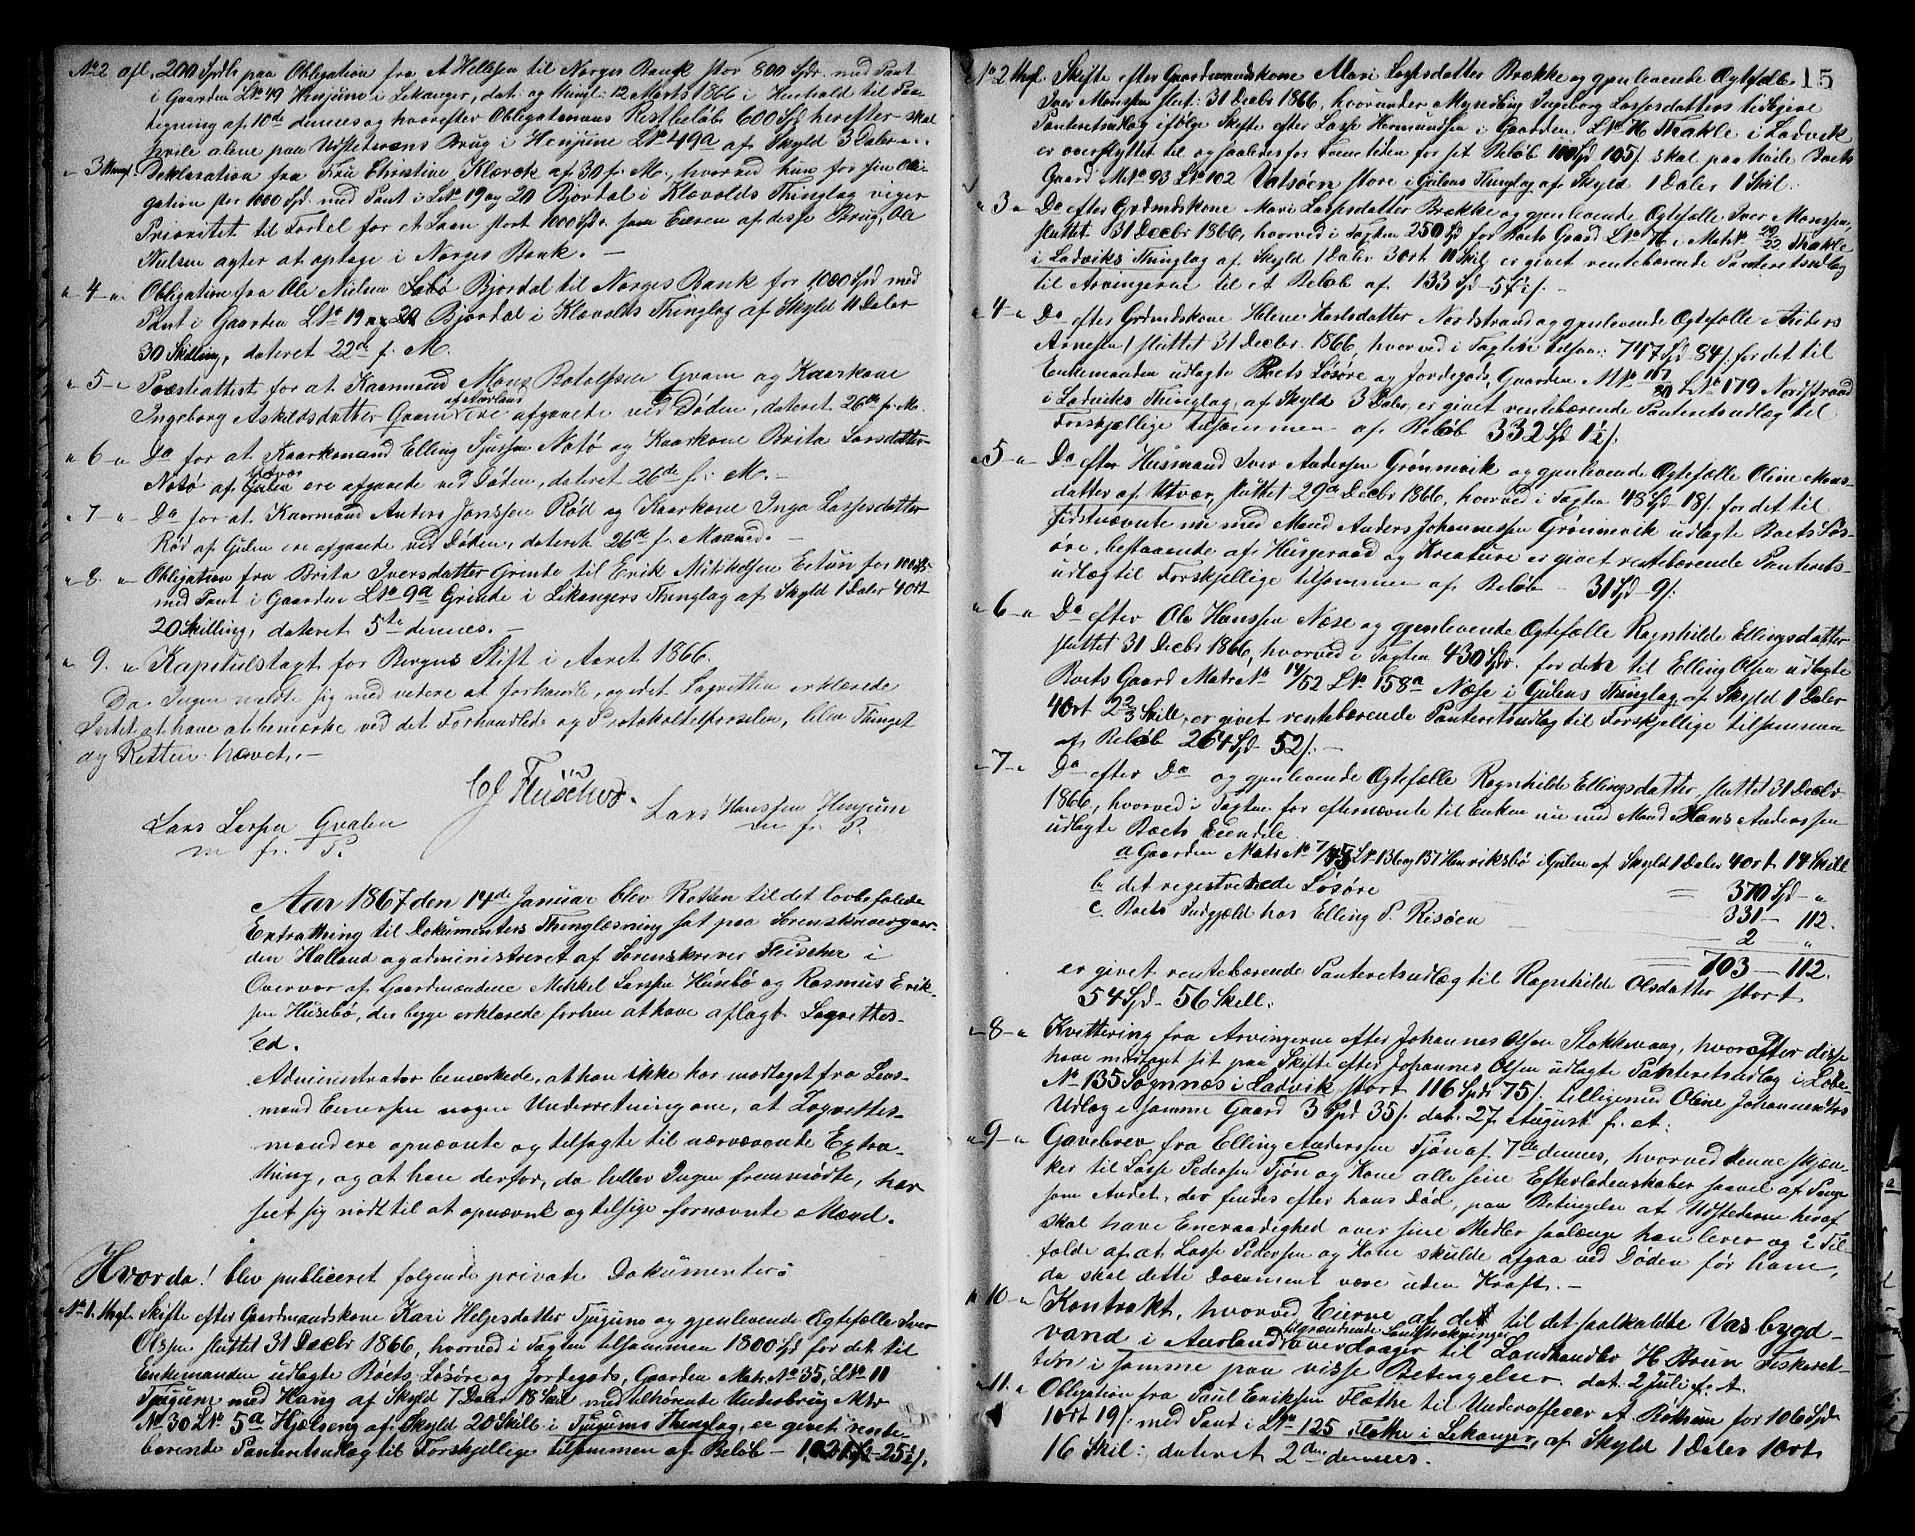 No 2 afl. 200 Spdlr paa Obligation fra A Hellesen til Norges Bank stor 800 Spdr. med Pant
i Gaarden LNo 49 Henjum i Lekanger, dat: og thingl: 12 Marts 1866 i Henhold til Paa-
tegning af 10de dennes og hvorefter Obligationens Restbeløb 600 Spd herefter skal
hvile alene paa Udstederens Brug i Henjum LNo 49a af Skyld 3 Daler
" 3 thingl. Deklaration fra Fru Christine Klærck af 30 f. M., hvorved hun for sin Obli-
gation stor 1000 Spd. med Pant i LNo 19 og 20 Bjordal i Klævolds Thinglag viger
Prioritet til Fordel for et Laan stort 1000 Spd. som Eieren af disse Brug, Ole
Nielsen agter at optage i Norges Bank. —
" 4 " Obligation fra Ole Nielsen Bjordal til Norges Bank for 1,000 Spd med
Pant i Gaarden LNo 19 og 20 Bjordal i Klævolds Thinglag af Skyld 11 Daler
30 Skilling, dateret 22de f. M.
" 5 " Præsteattest for at Kaarmand Mons Botolfsen Gvam og Kaarkone
af Aurland
Ingeborg Askildsdatter Gvam ere afgaaede ved Døden, dateret 26de f. M.
" 6 " Do for at Kaarkemand Elling Sjursen Notø og Kaarkone Brita Larsdatter
Notø af Gulen ere afgaaede ved Døden, dateret 26de f. M. —
" 7 " Do for at Kaarmand Anders Jonssen Rød og Kaarkone Inga Lassesdatter
Rød af Gulen ere afgaaede ved Døden, dateret 26de f. Maaned. —
" 8. " Obligation fra Brita Iversdatter Grinde til Erik Mikkelsen Eitun for 100 Sp
med Pant i Gaarden LNo 9a Grinde i Lekangers Thinglag af Skyld 1 Daler 4 Ort
20 Skilling, dateret 5te dennes. —
" 9. " Kapitulstaxt for Bergens Stift i Aaret 1866.
Da Ingen meldte sig med videre at forhandle, og idet Lagretten erklærede
Intet at have at bemærke ved det Forhandlede og Protokoltilførselen, blev Thinget
og Retten hævet. —
CJ Fleischer.
Lars Larsen Gvalen
m f. P.
Lars Hanssen Henjum
m f. P.
Aar 1867 den 14de Januar blev Retten til det lovbefalede
Extrathing til Dokumenters Thinglæsning sat paa Sorenskrivergaar-
den Halland og administreret af Sorenskriver Fleischer i
Overvær af Gaardmændene Mikkel Larsen Husebø og Rasmus Erik-
sen Husebø, der begge erklærede forhen at have aflagt Lagrettes-
ed.
Administrator bemærkede, at han ikke har modtaget fra Lens-
mand Einersen nogen Underretning om, at Lagrettes-
mænd ere opnævnte og tilsagte til nærværende Extra-
thing, og at han derfor, da heller Ingen fremmødte, har
seet sig nødt til at opnævne og tilsige fornævnte Mænd.
Hvorda! blev publiceret følgende private Dokumenter:
No 1. thgl. Skifte efter Gaardmandskone Kari Helgesdatter Tjugum og gjenlevende Ægtefælle Iver
Olssen sluttet 31 Decbr 1866, hvorved i Taxten tilsammen 1800 Spd for det til
Enkemanden udlagte Boets Løsøre og Jordegods, Gaarden Matr. No 35, LNo 11
Tjugum med Haug af Skyld 7 Daler 18 Skill med tilhørende Underbrug Mtr
No 30 LNo 5a Hjelseng af Skyld 20 Skill i Tjugums Thinglag, er givet rente-
bærende Panteretsudlæg til Forskjellige tilsammen af Beløb — 1,021 Spd 25½ /.
15
No 2 thgl. Skifte efter Gaardmandskone Mari Lassesdatter Brække og gjenlevende Ægtefælle
Iver Monssen slut: 31 Decbr 1866, hvorunder Myndling Ingeborg Lassesdatters tidligere
Panteretsudlæg ifølge Skifte efter Lasse Hermundsen i Gaarden LNo 76 Thakle i Ladvik
er overflyttet til og saaledes for Fremtiden for sit Beløb 100 Spd 105 /. skal paahvile Boets
Gaard MNo 93 LNo 102 Vatsøen store i Gulens Thinglag af Skyld 1 Daler 1 Skil.
" 3 " Do efter Grdmdskone Mari Lassesdatter Brække og gjenlevende Ægtefælle Iver Monssen,
sluttet 31 Decbr 1866, hvorved i Taxten 250 Spd for Boets Gaard LNo 76 i MatNo 20/22 Thakle
i Ladviks Thinglag af Skyld 1 Daler 3 Ort 11 Skil er givet rentebærende Panteretsudlæg
til Arvingerne til et Beløb af 133 Spd 57½ /. —
" 4 " Do efter Grdmdskone Helene Karlsdatter Nordstrand og gjenlevende Ægtefælle Anders
Arnesen, sluttet 31 Decbr. 1866, hvorved i Taxten tilsam: 747 Spd 84 /. for det til
Enkemanden udlagte Boets Løsøre og Jordegods, Gaarden MNo LNo 179 Nordstrand
i Ladviks Thinglag, af Skyld 3 Daler, er givet rentebærende Panteretsudlæg til
Forskjellige tilsammen af Beløb 332 Spd 1½ /.
" 5 " Do efter Husmand Iver Andersen Grønnevik og gjenlevende Ægtefælle Oline Mons-
datter af Utvær, sluttet 29de Decbr 1866, hvorved i Taxten 48 Spd 18 /. for det til
Sidstnævnte nu med Mand Anders Johannessen Grønnevik udlagte Boets Løs-
øre, bestaaende af Husgeraad og Kreature er givet rentebærende Panterets-
udlæg til Forskjellige tilsammen af Beløb — 31 Spd 9 /.
" 6 " Do efter Ole Hanssen Næse og gjenlevende Ægtefælle Ragnhilde Ellingsdatter
sluttet 31 Decbr 1866, hvorved i Taxten 430 Spdr. for det til Elling Olsen udlagte
Boets Gaard Matr No 14/52 LNo 158a Næse i Gulens Thinglag af Skyld 1 Daler
4 Ort 2 2/3 Skill, er givet rentebærende Panteretsudlæg til Forskjellige tilsammen
af Beløb 264 Spd 52 /. —
" 7 " Do efter Do og gjenlevende Ægtefælle Ragnhilde Ellingsdatter, sluttet 31 Decbr
1866, hvorved i Taxten for efternævnte til Enken nu med Mand Hans Anderssen
udlagte Boets Eiendele.
a Gaarden Matr No 7/45 LNo 136 og 137 Henriksbø i Gulen af Skyld 1 Daler 4 Ort 14 Skill
= 370 Spd — "
b det registrerede Løsøre = 331 — 112.
c. Boets Indgjæld hos Elling P. Risøen 2 "
703 — 112.
er givet rentebærende Panteretsudlæg til Ragnhilde Olsdatter stort
54 Spd — 56 Skill.
" 8 " Kvittering fra Arvingerne efter Johannes Olsen Stokkevaag, hvorefter disse
have modtaget sit paa Skifte efter Johannes Olsen udlagte Panteretsudlæg i Løbe
No 135 Sognnæs i Ladvik stort 116 Spdr 75 /. tilligemed Oline Johannesdtrs
Udlæg i samme Gaard 3 Spd 35 /. dat. 27 August f. A.
" 9 " Gavebrev fra Elling Anderssen Tjøn af 7de dennes, hvorved denne skjæn-
ker til Lasse Pedersen Tjøn og Kone alle sine Efterladenskaber saavel af Penge
som Andet, der findes efter hans Død, paa Betingelse at Udstederne heraf
skal have Eneraadighed over sine Midler saalænge han lever og i Til-
fælde af at Lasse Pedersen og Kone skulde afgaa ved Døden før ham,
da skal dette Document være uden Kraft. —
" 10 " Kontrakt, hvorved Eierne af de til det saakaldte Vasbygd-
tilgrændsende Landstrækninger
vand i Aurland overdrager til Landhandler H. Brun Fiskeret-
ten i samme paa visse Betingelser, dat. 2 Juli f. A.
" 11. " Obligation fra Paul Eriksen Flæthe til Underofficer A Røthum for 106 Spdr
1 Ort 19 /. med Pant i LNo 125 Flæthe i Lekanger, af Skyld 1 Daler 1 Ort
16 Skil: dateret 2den dennes.